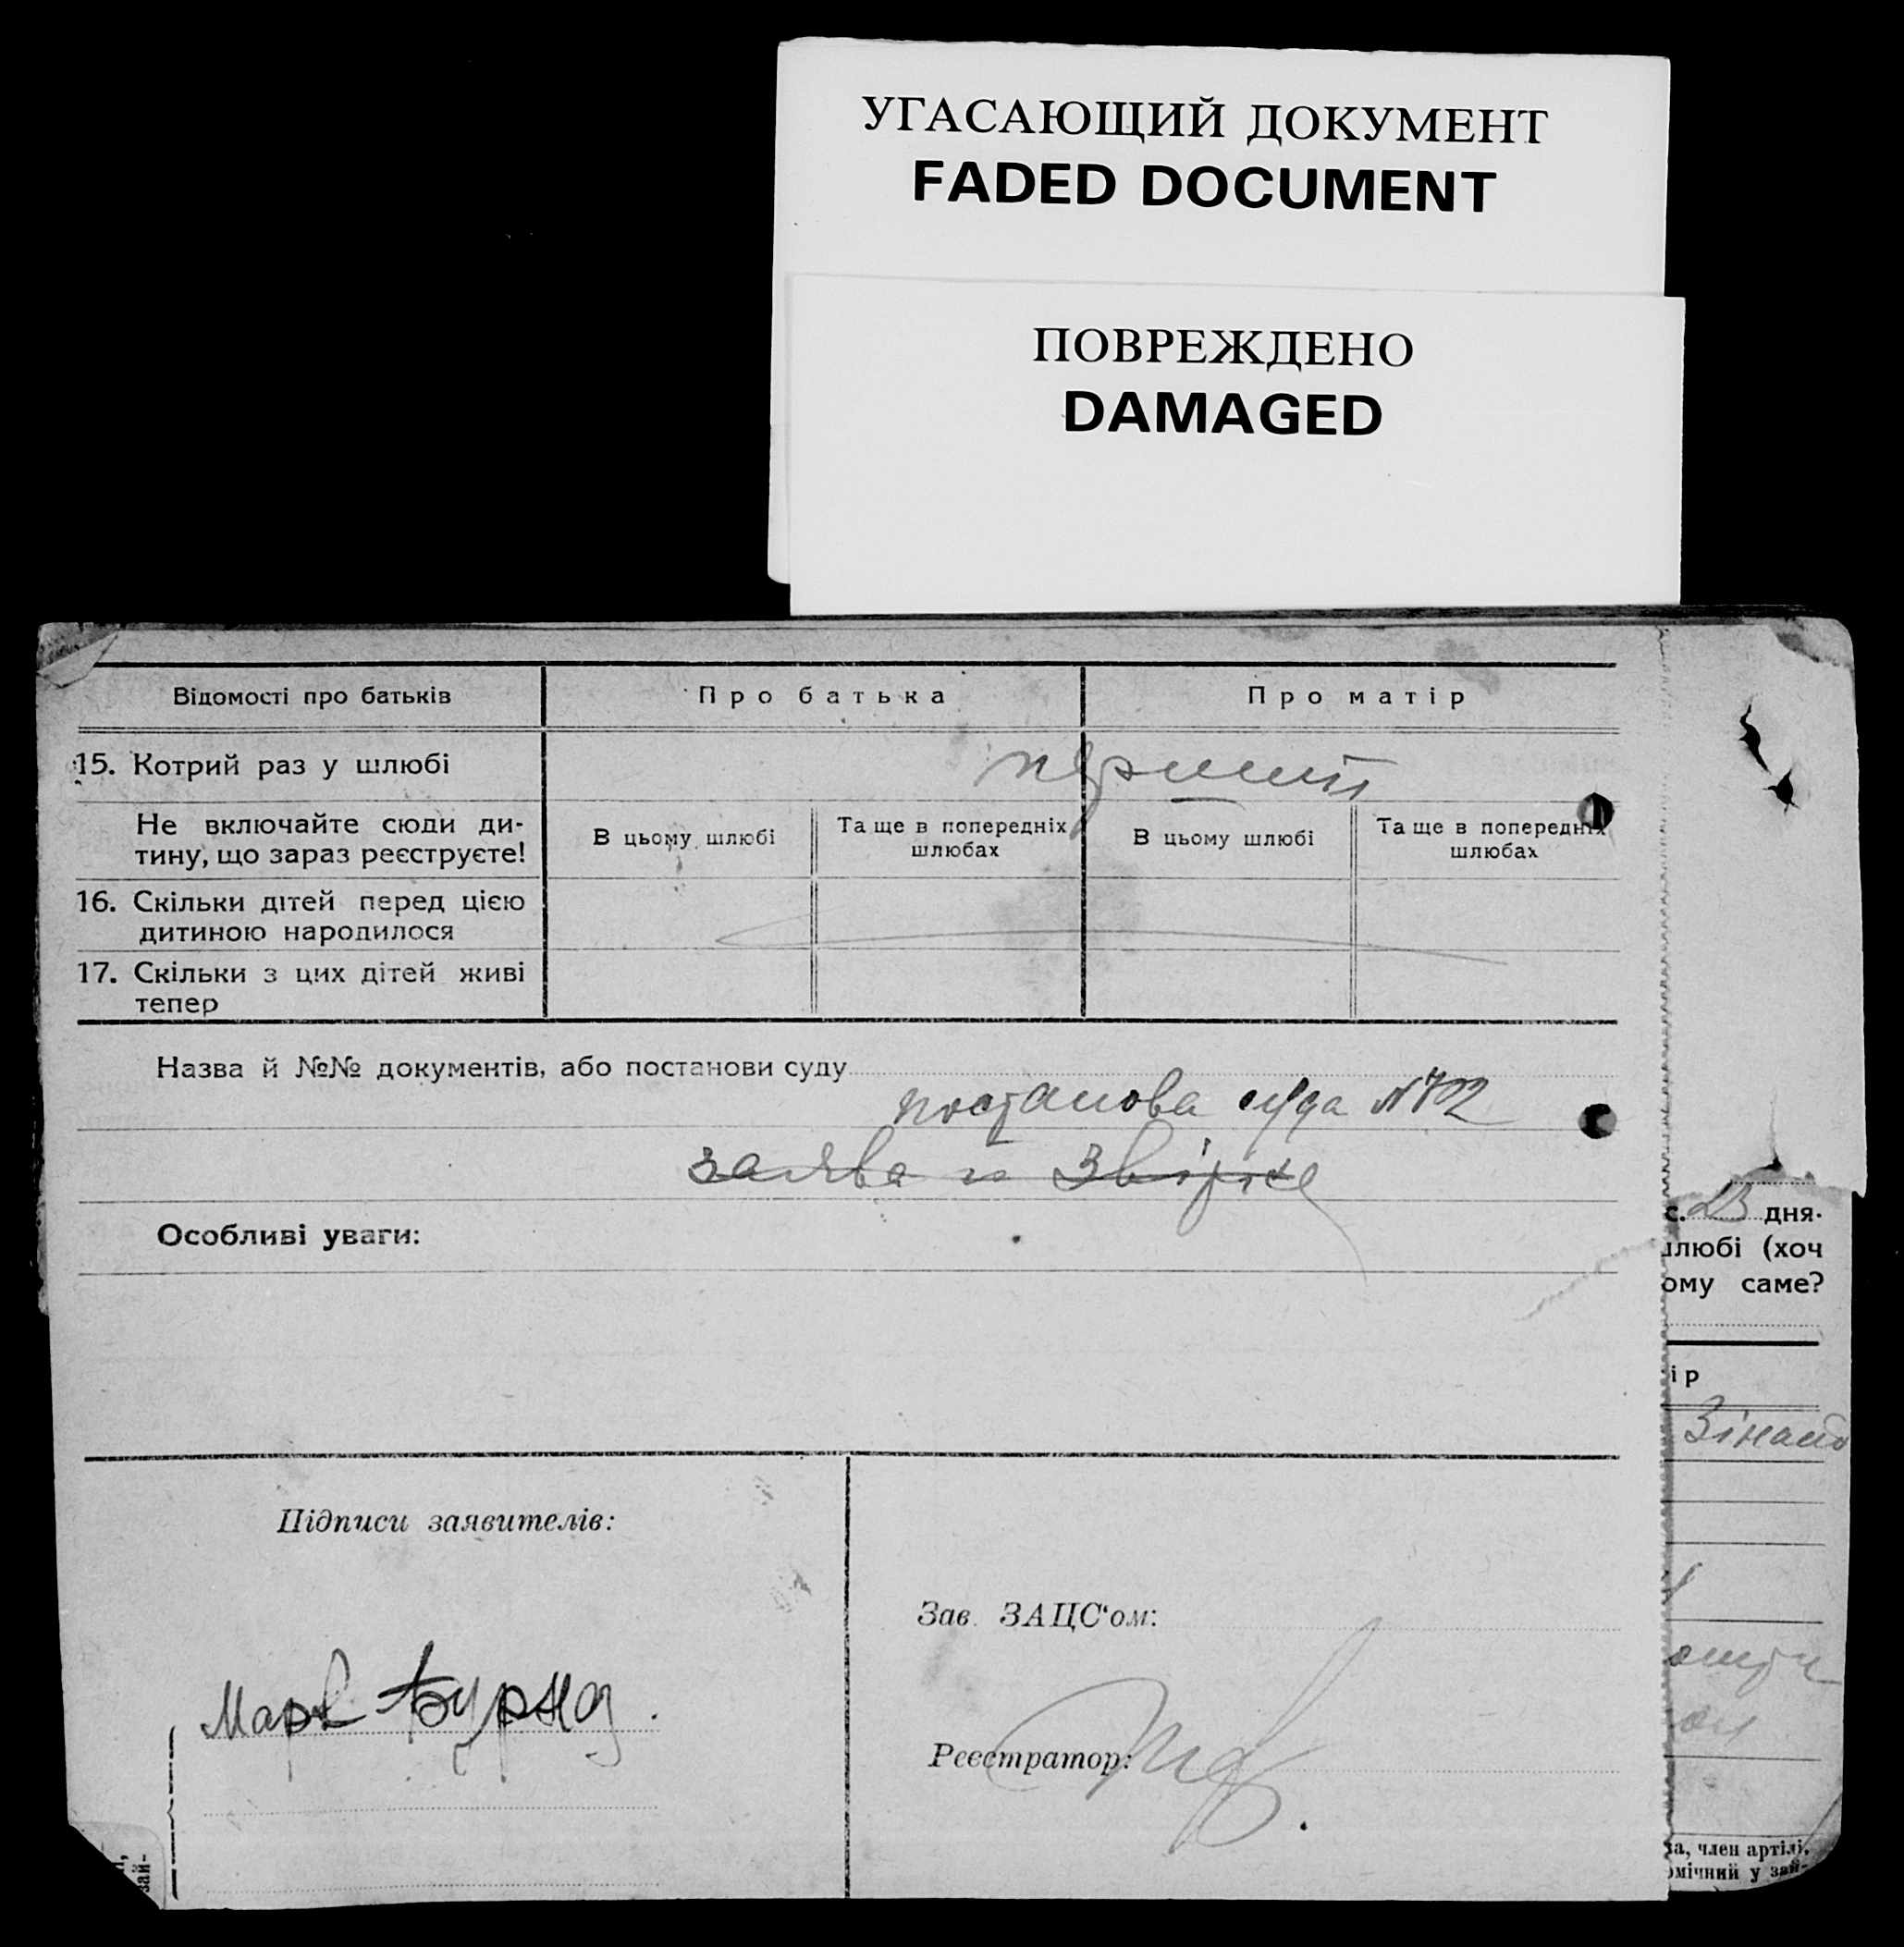 УГАСАЮЩИЙ ДОКУМЕНТ
FADED DOCUMENT
ПОВРЕЖДЕНО
DAMAGED
Відомості про батьків
Про батька
Про матір
15. Котрий раз у шлюбі
перший
Не включайте сюди ди-
тину, що зараз реєструєте!
В цьому шлюбі
Та ще в попередніх
шлюбах
В цьому шлюбі
Та ще в попередніх
шлюбах
16. Скільки дітей перед цією
дитиною народилося
17. Скільки з цих дітей живі
тепер
Назва й №№ документів, або постанови суду
постанова суда №702
заява
Особливі уваги:
Підписи заявителів:
Зав. ЗАЦС‘ом:
Реєстратор:
с. 23 дня.
шлюбі (хоч
ому саме?
ір
Зінаїд
да, член артілі,
омічний у зай-
зай-